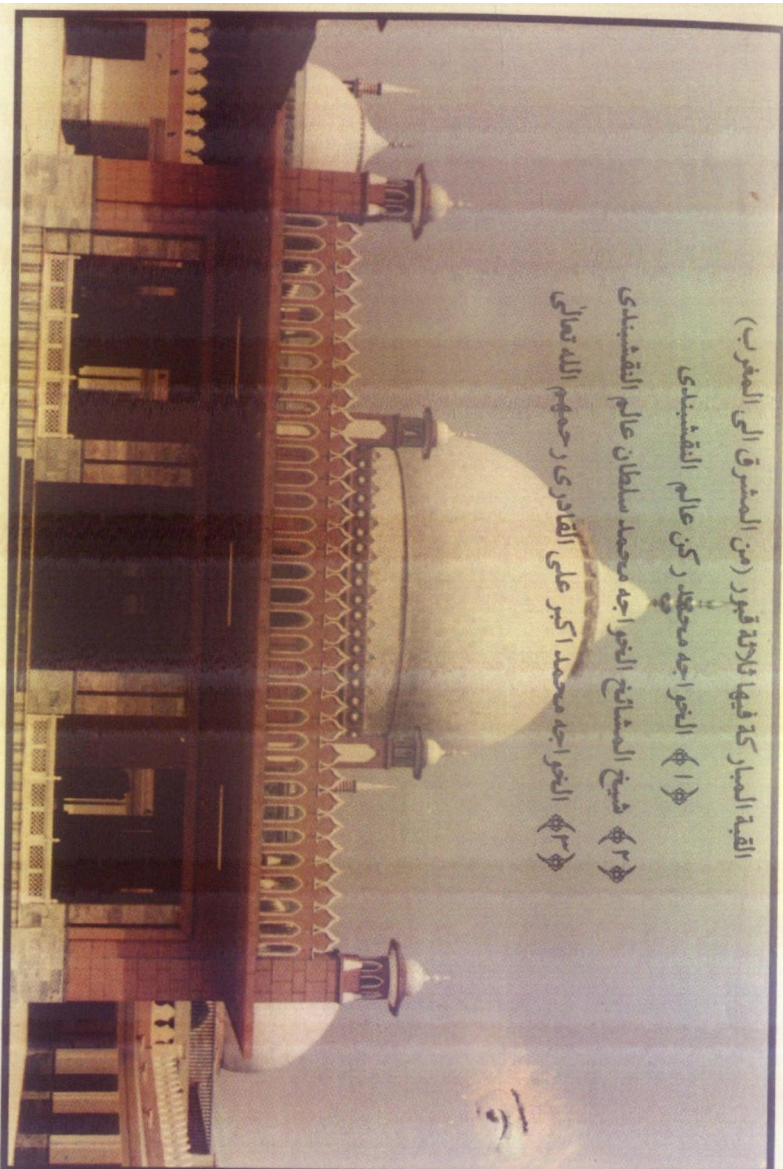 القبة المباركة فيها ثلاثة قبور (من المشرق الى المغرب)
﴿۱﴾ الخواجه محمد ركن عالم النقشبندى
﴿۲﴾ شيخ المشائخ الخواجه محمد سلطان عالم النقشبندى
﴿۳﴾ الخواجه محمد اكبر على القادرى رحمهم الله تعالٰى